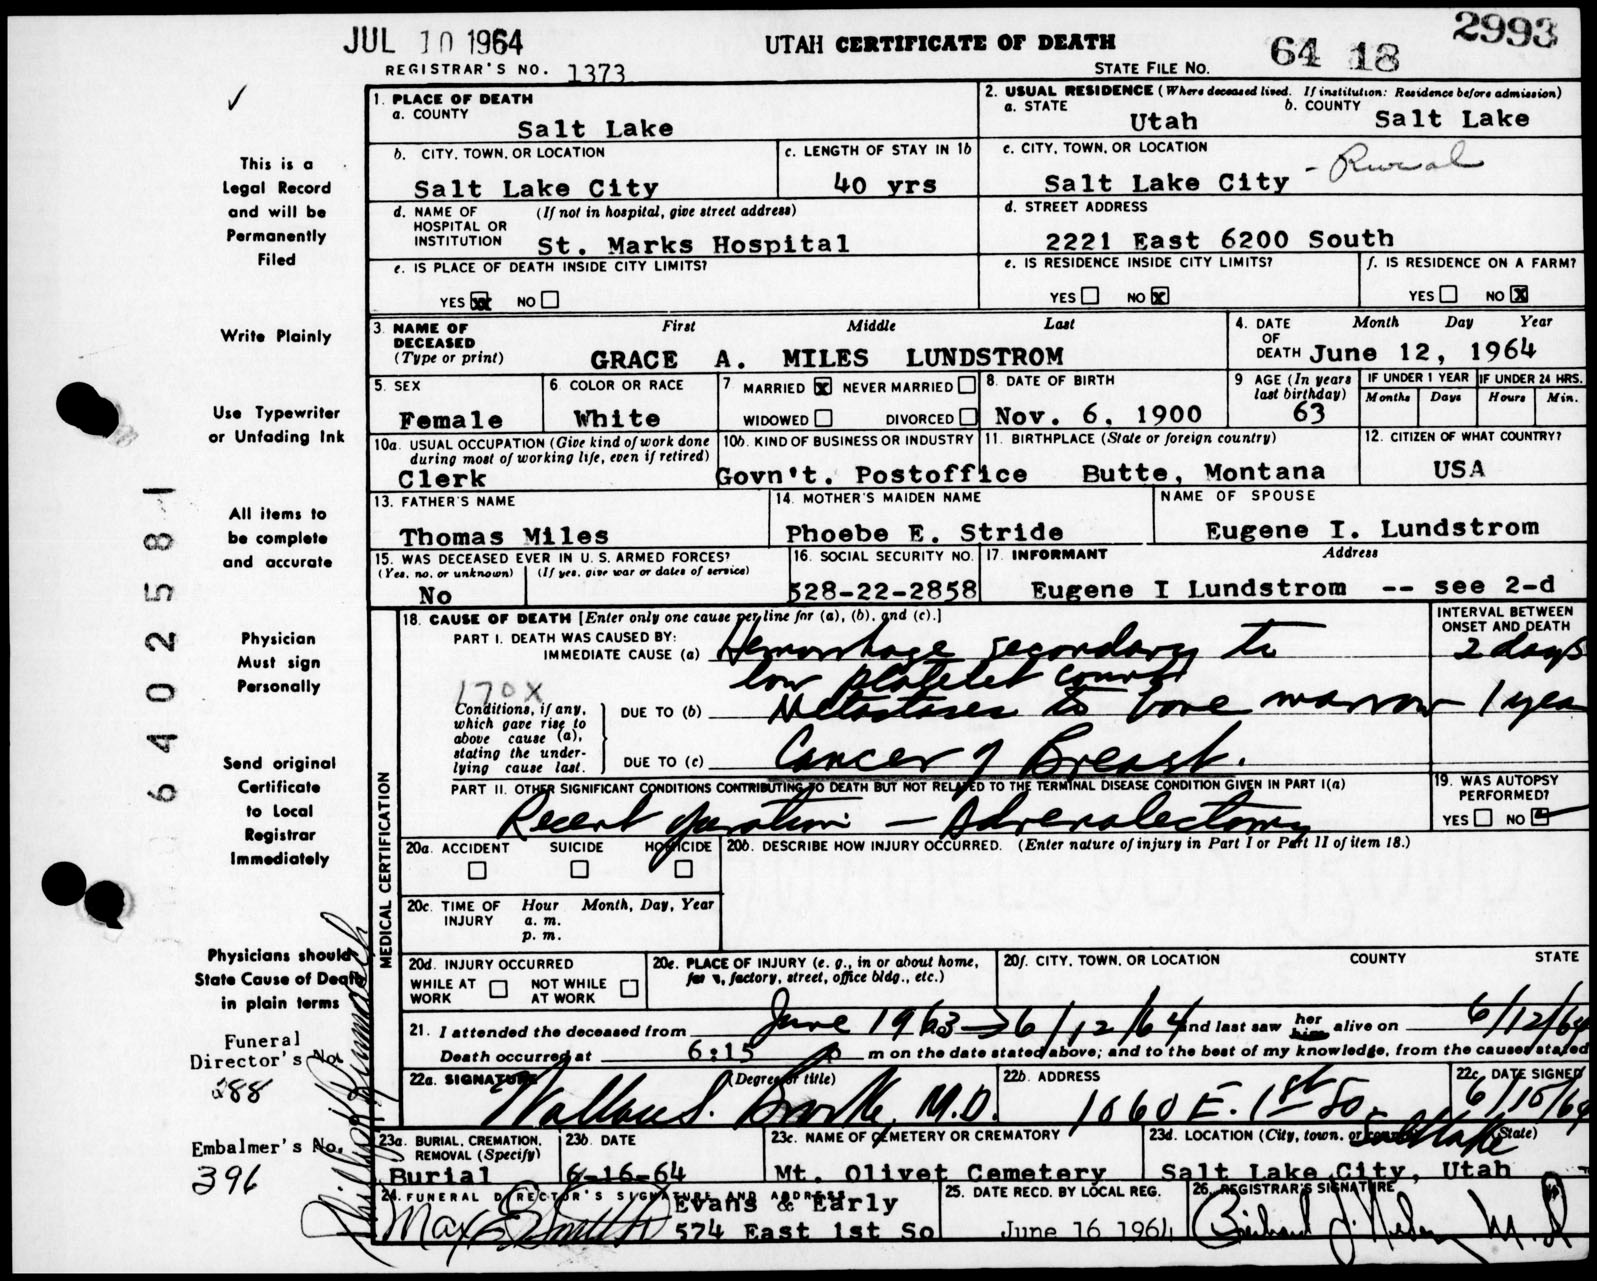 JUL 10 1964
UTAH CERTIFICATE OF DEATH
2993
REGISTRAR'S NO. 1373
STATE FILE NO. 64 18
✓
This is a
Legal Record
and will be
Permanently
Filed
Write Plainly
Use Typewriter
or Unfading Ink
All items to
be complete
and accurate
Physician
Must sign
Personally
Send original
Certificate
to Local
Registrar
Immediately
Physicians should
State Cause of Death
in plain terms
Funeral
Director's No.
288
Embalmer's No.
396
64 02581
1. PLACE OF DEATH
a. COUNTY
Salt Lake
2. USUAL RESIDENCE (Where deceased lived. If institution: Residence before admission)
a. STATE Utah
b. COUNTY Salt Lake
b. CITY, TOWN, OR LOCATION
Salt Lake City
c. LENGTH OF STAY IN 1b
40 yrs
c. CITY, TOWN, OR LOCATION
Salt Lake City - Rural
d. NAME OF HOSPITAL OR INSTITUTION (If not in hospital, give street address)
St. Marks Hospital
d. STREET ADDRESS
2221 East 6200 South
e. IS PLACE OF DEATH INSIDE CITY LIMITS?
YES xx NO
e. IS RESIDENCE INSIDE CITY LIMITS?
YES NO x
f. IS RESIDENCE ON A FARM?
YES NO x
3. NAME OF DECEASED (Type or print) First Middle Last
GRACE A. MILES LUNDSTROM
4. DATE OF DEATH Month Day Year
June 12, 1964
5. SEX
Female
6. COLOR OR RACE
White
7. MARRIED x NEVER MARRIED
WIDOWED DIVORCED
8. DATE OF BIRTH
Nov. 6, 1900
9. AGE (In years last birthday)
63
IF UNDER 1 YEAR
Months Days
IF UNDER 24 HRS.
Hours Min.
10a. USUAL OCCUPATION (Give kind of work done during most of working life, even if retired)
Clerk
10b. KIND OF BUSINESS OR INDUSTRY
Govn't. Postoffice
11. BIRTHPLACE (State or foreign country)
Butte, Montana
12. CITIZEN OF WHAT COUNTRY?
USA
13. FATHER'S NAME
Thomas Miles
14. MOTHER'S MAIDEN NAME
Phoebe E. Stride
NAME OF SPOUSE
Eugene I. Lundstrom
15. WAS DECEASED EVER IN U.S. ARMED FORCES?
(Yes, no, or unknown) (If yes, give war or dates of service)
No
16. SOCIAL SECURITY NO.
528-22-2858
17. INFORMANT Address
Eugene I Lundstrom -- see 2-d
MEDICAL CERTIFICATION
18. CAUSE OF DEATH [Enter only one cause per line for (a), (b), and (c).]
INTERVAL BETWEEN ONSET AND DEATH
PART I. DEATH WAS CAUSED BY:
IMMEDIATE CAUSE (a) Hemorrhage secondary to 2 days
low platelet count
170X
Conditions, if any, which gave rise to above cause (a), stating the underlying cause last.
DUE TO (b) Metastases to bone marrow 1 year
DUE TO (c) Cancer of Breast.
PART II. OTHER SIGNIFICANT CONDITIONS CONTRIBUTING TO DEATH BUT NOT RELATED TO THE TERMINAL DISEASE CONDITION GIVEN IN PART I(a)
Recent operation - Adrenalectomy
19. WAS AUTOPSY PERFORMED?
YES NO
20a. ACCIDENT SUICIDE HOMICIDE
20b. DESCRIBE HOW INJURY OCCURRED. (Enter nature of injury in Part I or Part II of item 18.)
20c. TIME OF INJURY Hour Month, Day, Year
a. m.
p. m.
20d. INJURY OCCURRED
WHILE AT WORK NOT WHILE AT WORK
20e. PLACE OF INJURY (e. g., in or about home, farm, factory, street, office bldg., etc.)
20f. CITY, TOWN, OR LOCATION COUNTY STATE
21. I attended the deceased from June 1963 → 6/12/64 and last saw her him alive on 6/12/64
Death occurred at 6:15 p m on the date stated above; and to the best of my knowledge, from the causes stated
22a. SIGNATURE (Degree or title)
Wallace S. Brooke, M.D.
22b. ADDRESS
1060 E. 1st So.
Salt Lake
22c. DATE SIGNED
6/15/64
23a. BURIAL, CREMATION, REMOVAL (Specify)
Burial
23b. DATE
6-16-64
23c. NAME OF CEMETERY OR CREMATORY
Mt. Olivet Cemetery
23d. LOCATION (City, town, or county) (State)
Salt Lake City, Utah
24. FUNERAL DIRECTOR'S SIGNATURE AND ADDRESS
Max E Smith
Evans & Early
574 East 1st So
25. DATE RECD. BY LOCAL REG.
June 16 1964
26. REGISTRAR'S SIGNATURE